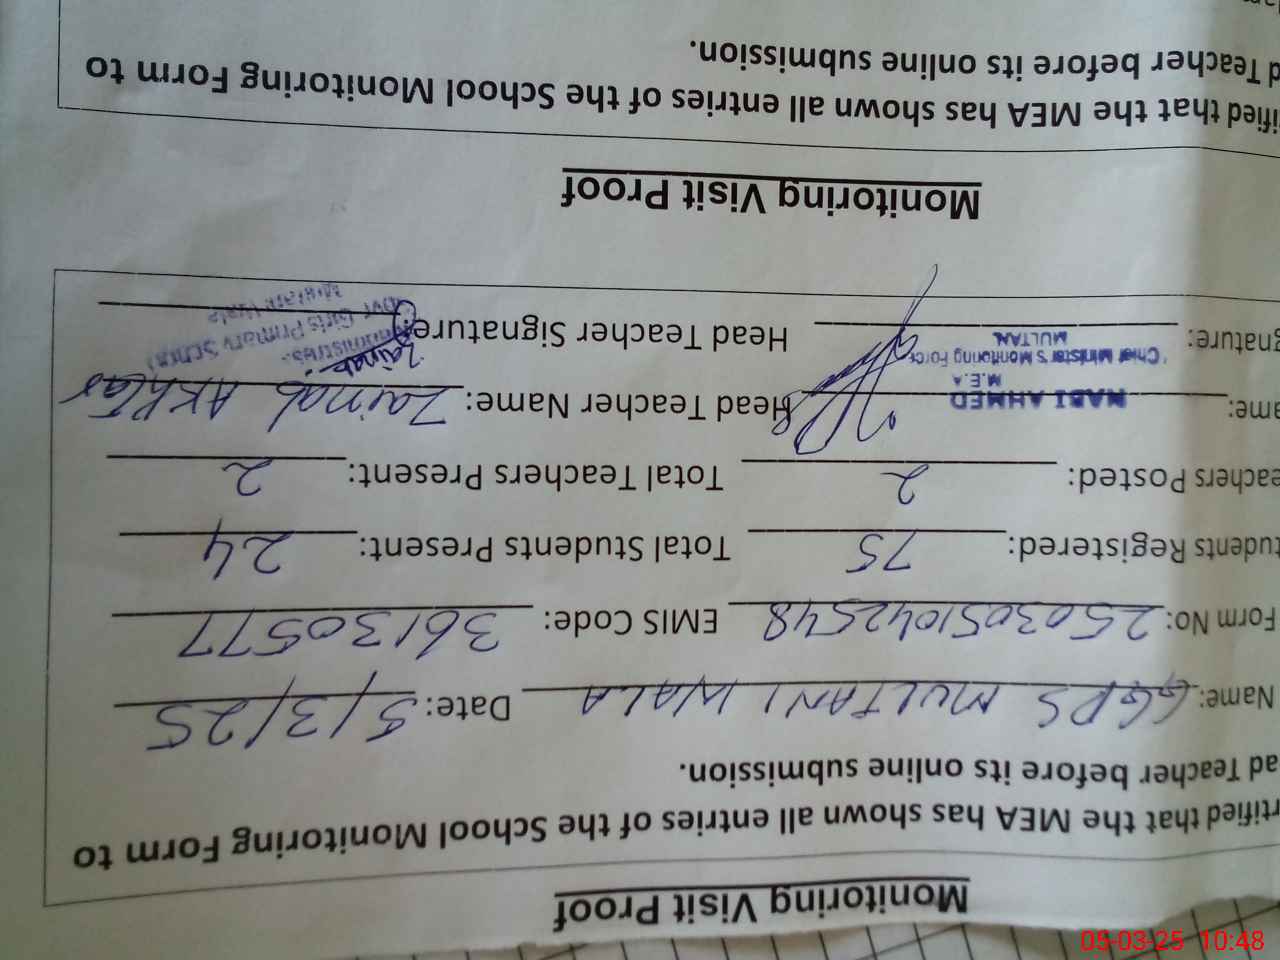 Monitoring Visit Proof
rtified that the MEA has shown all entries of the School Monitoring Form to
ad Teacher before its online submission.
Name: GGPS MULTANI WALA Date: 5/3/25
Form No: 2503051042548 EMIS Code: 36130577
tudents Registered: 75 Total Students Present: 24
eachers Posted: 2 Total Teachers Present: 2
ame: NABI AHMED Head Teacher Name: Zainab Akhtar
M.E.A
Chief Minister'S Monitoring Force
MULTAN.
gnature: Head Teacher Signature: Zainab
Govt Girls Primary School
Monitoring Visit Proof
ified that the MEA has shown all entries of the School Monitoring Form to
d Teacher before its online submission.
05-03-25 10:48